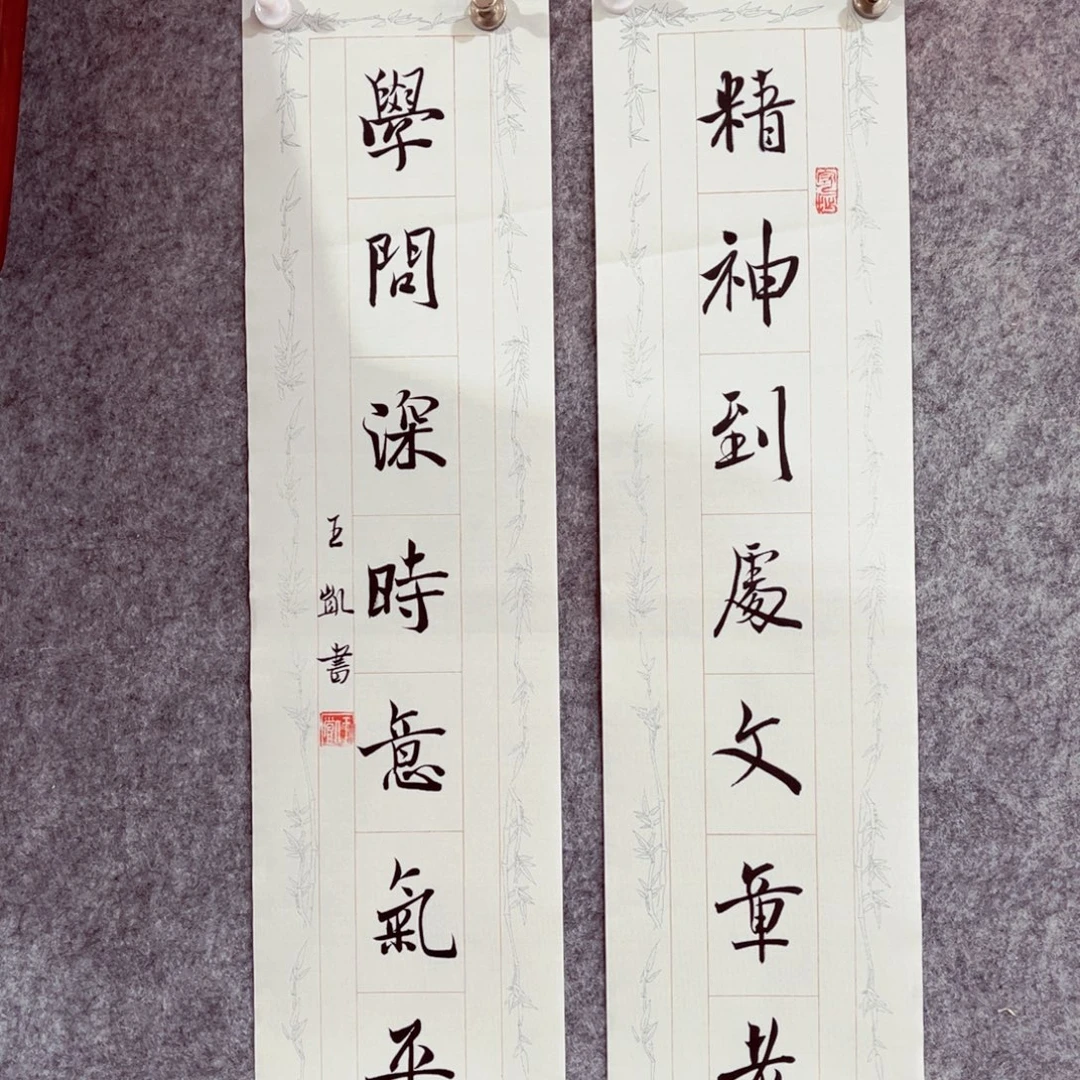 精神到處文章老
學問深時意氣平
王凱書